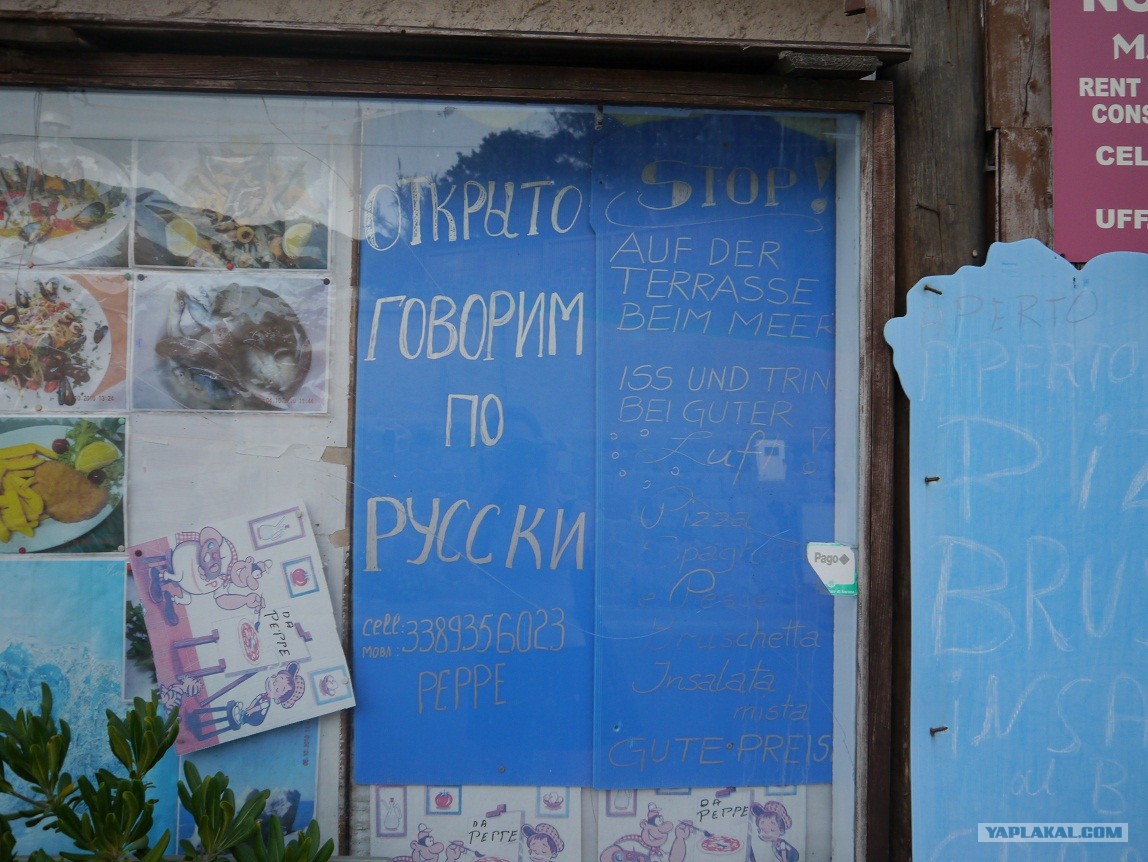 ОТКРЫТО
ГОВОРИМ
ПО
РУССКИ
cell: 3389356023
МОВЛ:
PEPPE
STOP!
AUF DER
TERRASSE
BEIM MEER
ISS UND TRIN
BEI GUTER
Luf
Pizza
Bruschetta
Insalata
mista
GUTE PREIS
Pago
DA
PEPPE
DA
PEPPE
DA
PEPPE
NO
M.
RENT
CONS
CEL
UFF.
APERTO
APERTO
Piz
BRU
iNSA
di B
YAPLAKAL.COM